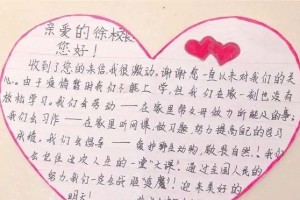 亲爱的徐校长
您好！
收到了您的来信，我很激动。谢谢您一直以来对我们的关
心。由于疫情暂时我们不能上学，但我们在家一刻也没有
放松学习。我们去劳动——在家里帮父母做力所能及的事；
我们去习作——在家里听网课，做习题，努力提高自己的复习
成绩。我们去倡导——爱护野生动物，敬畏自然！我们
去记住这次人生的一堂"大课"。通过全国人民的
努力，我们一定会战胜病魔！迎来美好的
明天！